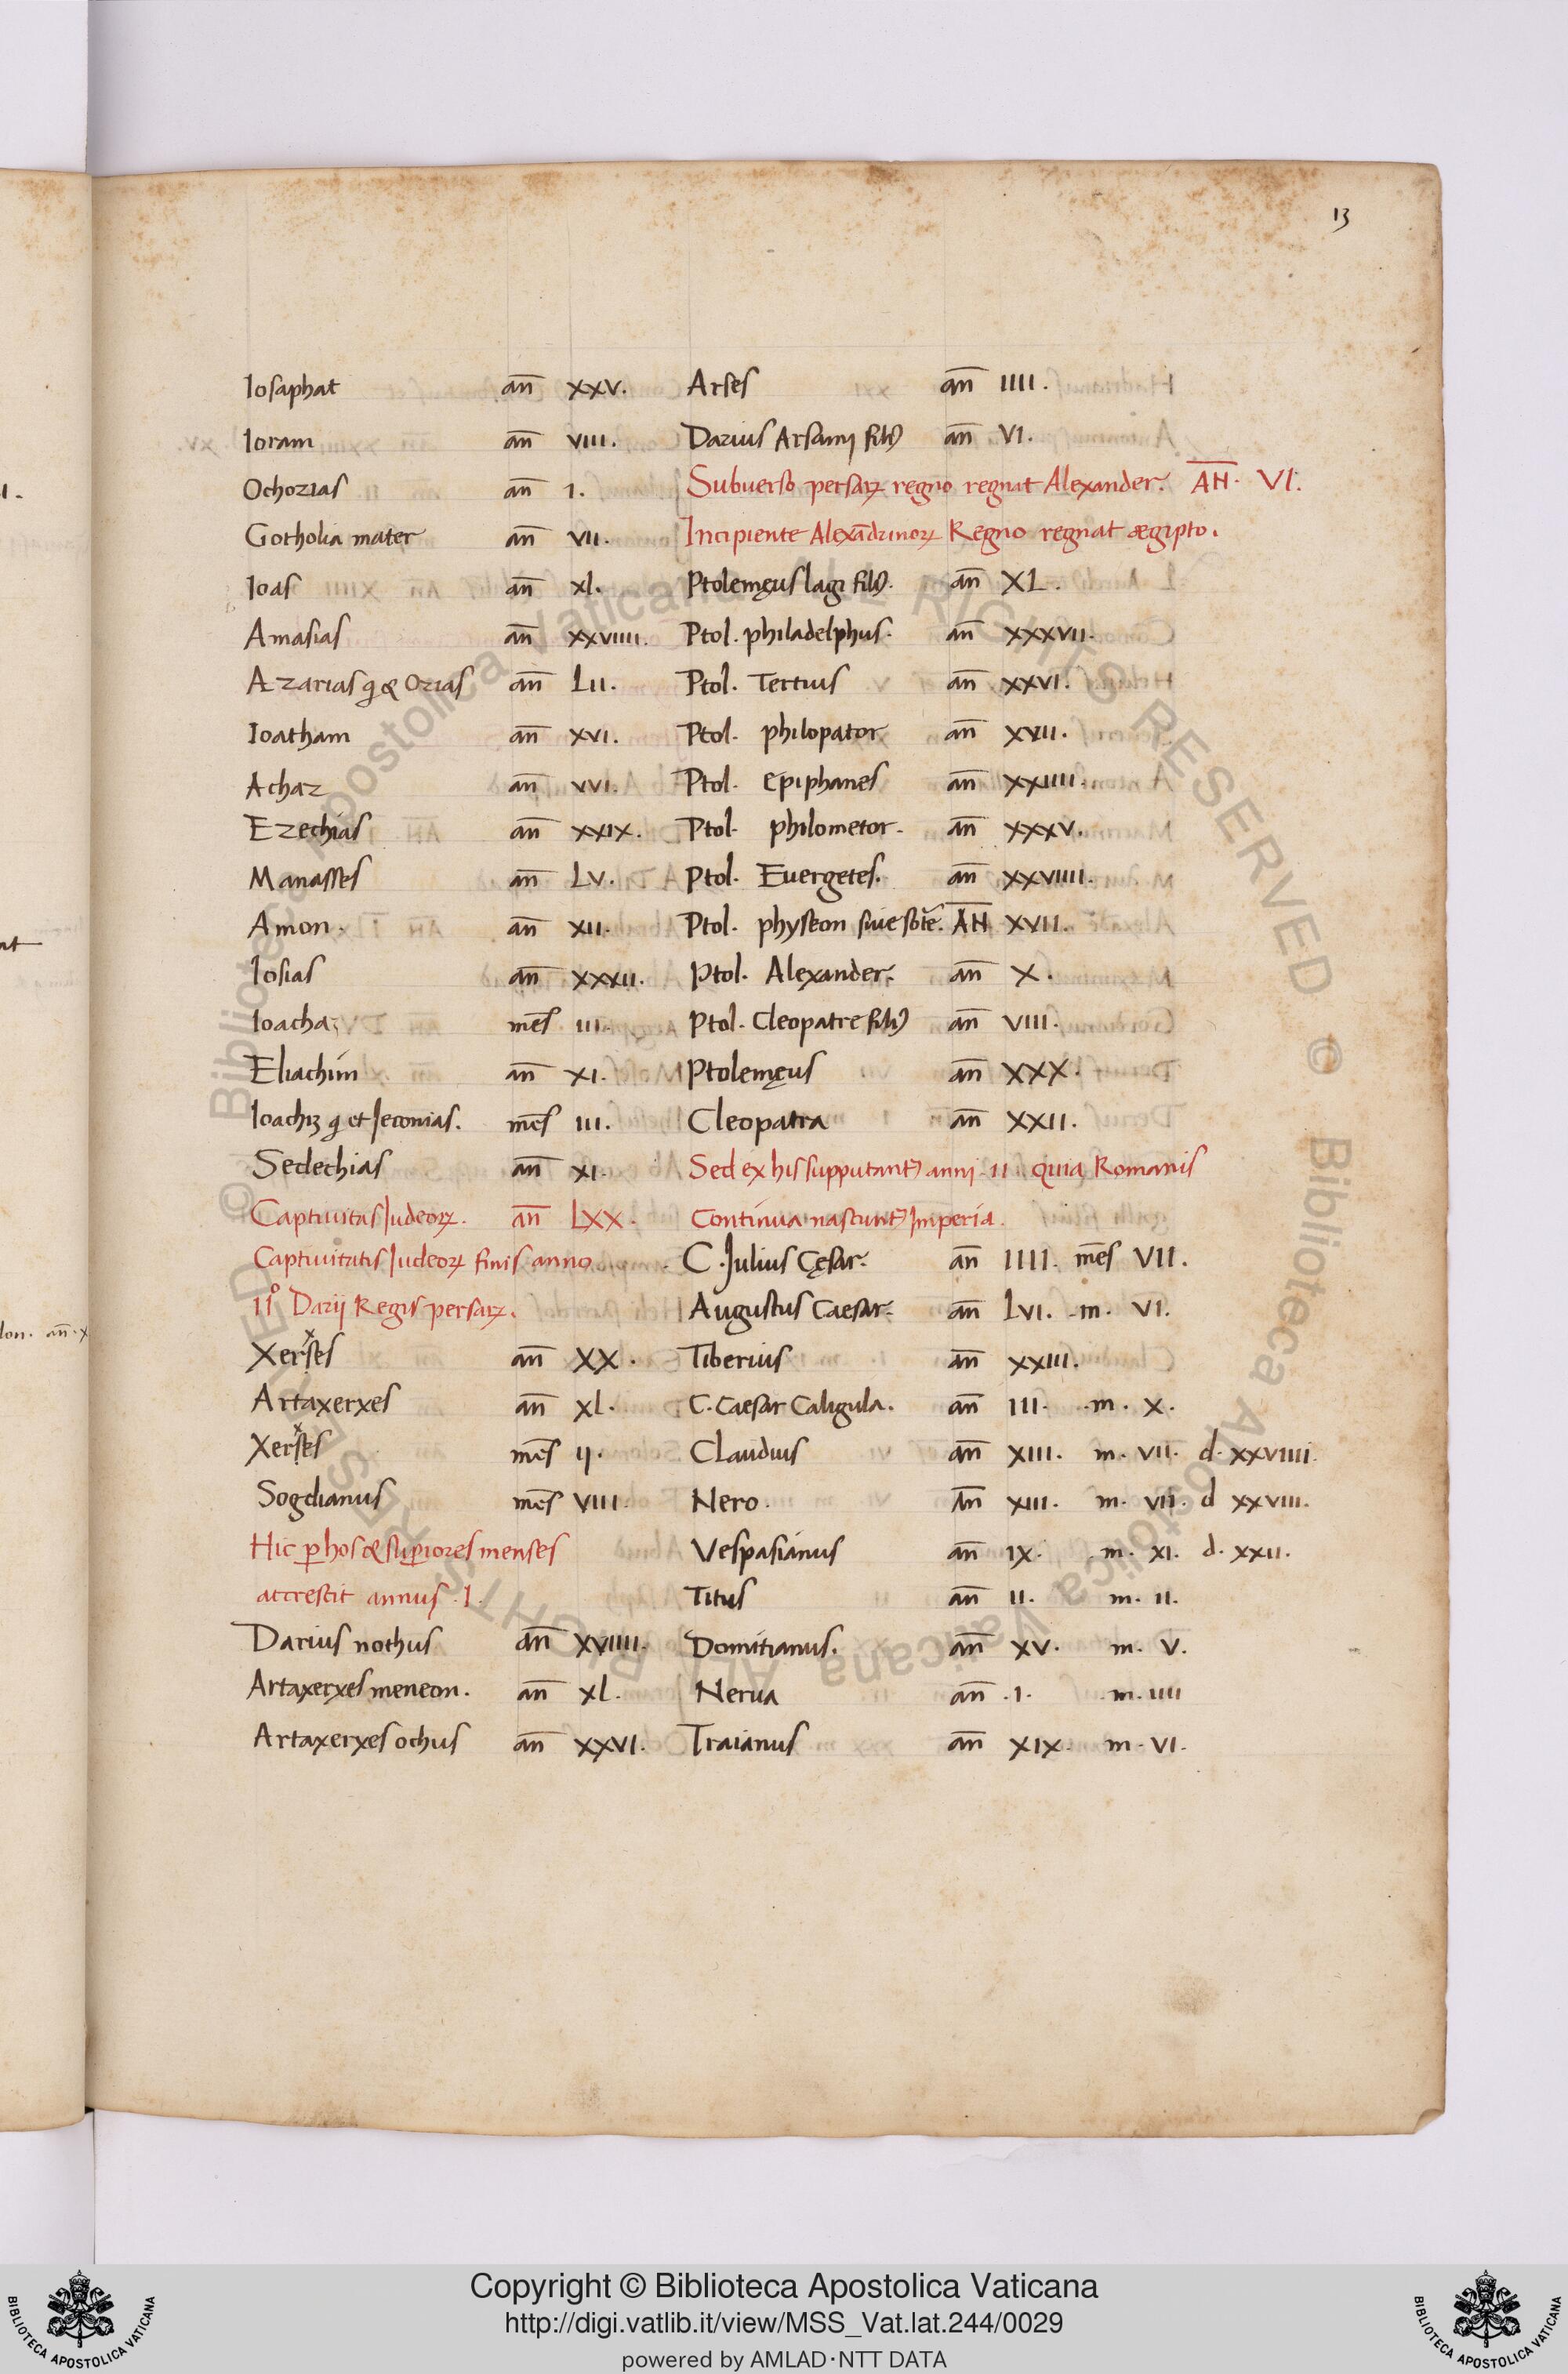 13
Iosaphat an̅ xxv.
Ioram an̅ viii.
Ochozias an̅ 1.
Gotholia mater an̅ vii.
Ioas an̅ xl.
Amasias an̅ xxviiii.
Azarias q̣ & Ozias an̅ Lii.
Ioatham an̅ xvi.
Achaz an̅ xvi.
Ezechias an̅ xxix.
Manasses an̅ Lv.
Amon. an̅ xii.
Iosias an̅ xxxii.
Ioachaz mēs iii.
Eliachim an̅ xi.
Ioachiʒ q̣ et Jeconias. mēs iii.
Sedechias an̅ xi.
Captiuitas Judeoꝝ. an̅ Lxx.
Captiuitatis Judeoꝝ finis anno
11° Darij Regis persaꝝ.
Xerses an̅ XX.
Artaxerxes an̅ xl.
Xerses mēs ij.
Sogdianus mēs VIII.
Hic ꝑ hos & suꝑiores menses
accrescit annus .I.
Darius nothus an̅ xviiii.
Artaxerxes meneon. an̅ xl.
Artaxerxes ochus an̅ xxvi.
Arses an̅ IIII.
Darius Arsamj filiꝯ an̅ VI.
Subuerso persaꝝ regno regnat Alexander. AN̅. VI.
Incipiente Alexādrinoꝝ Regno regnat ægipto.
Ptolemęus lagi filiꝯ. an̅ XL.
Ptol. philadelphus. an̅ xxxvii.
Ptol. Tertius an̅ xxvi.
Ptol. philopator an̅ xvii.
Ptol. Epiphanes an̅ xxiiii.
Ptol. philometor. an̅ xxxv.
Ptol. Euergetes. an̅ xxviiii.
Ptol. physcon siue sotē. AN̅ XVII.
Ptol. Alexander. an̅ X.
Ptol. Cleopatre filiꝯ an̅ VIII.
Ptolemęus an̅ XXX.
Cleopatra an̅ XXII.
Sed ex his supputantꝰ anni .11. quia Romanis
Continua nascuntꝰ Imperia.
C. Julius Cęsar. an̅ IIII. mēs VII.
Augustus Caesar. an̅ Lvi. m. VI.
Tiberius an̅ xxiii.
C. Caesar Caligula. an̅ III. m. X.
Claudius an̅ XIII. m. VII. d. xxviiii.
Nero. an̅ XIII. m. VII. d xxviii.
Vespasianus an̅ ix. m. xi. d. xxii.
Titus an̅ ii. m. ii.
Domitianus. an̅ xv. m. v.
Nerua an̅ .1. m. iiii
Traianus an̅ XIX. m. VI.
© Biblioteca Apostolica Vaticana ALL RIGHTS RESERVED © Biblioteca Apostolica Vaticana ALL RIGHTS RESERVED
Copyright © Biblioteca Apostolica Vaticana
http://digi.vatlib.it/view/MSS_Vat.lat.244/0029
powered by AMLAD·NTT DATA
BIBLIOTECA APOSTOLICA VATICANA
BIBLIOTECA APOSTOLICA VATICANA